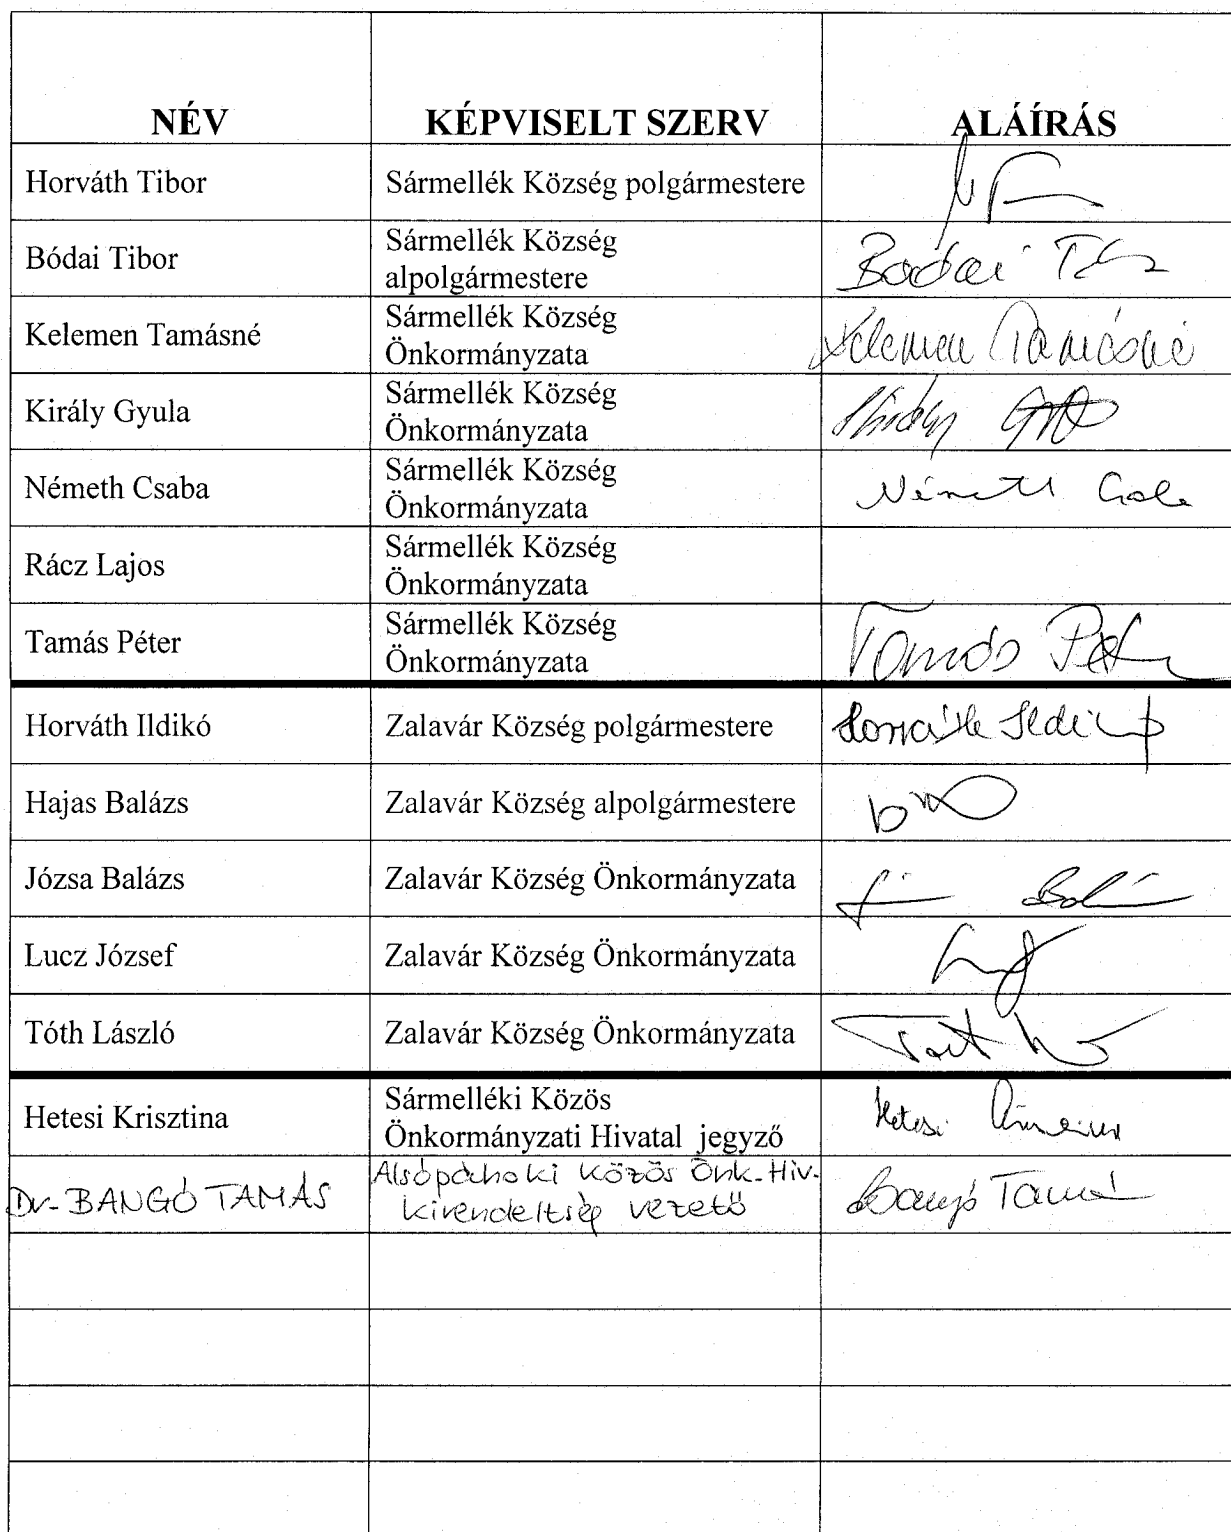 NÉV KÉPVISELT SZERV ALÁÍRÁS
Horváth Tibor Sármellék Község polgármestere
Bódai Tibor Sármellék Község
alpolgármestere Bódai
Kelemen Tamásné Sármellék Község
Önkormányzata Kelemen Tamásné
Király Gyula Sármellék Község
Önkormányzata Király
Németh Csaba Sármellék Község
Önkormányzata Németh Csaba
Rácz Lajos Sármellék Község
Önkormányzata
Tamás Péter Sármellék Község
Önkormányzata Tamás Péter
Horváth Ildikó Zalavár Község polgármestere Horváth Ildikó
Hajas Balázs Zalavár Község alpolgármestere
Józsa Balázs Zalavár Község Önkormányzata
Lucz József Zalavár Község Önkormányzata
Tóth László Zalavár Község Önkormányzata Tóth
Hetesi Krisztina Sármelléki Közös
Önkormányzati Hivatal jegyző Hetesi
Dr. BANGÓ TAMÁS Alsópáhoki Közös Önk. Hiv.
kirendeltség vezető Bangó Tamás